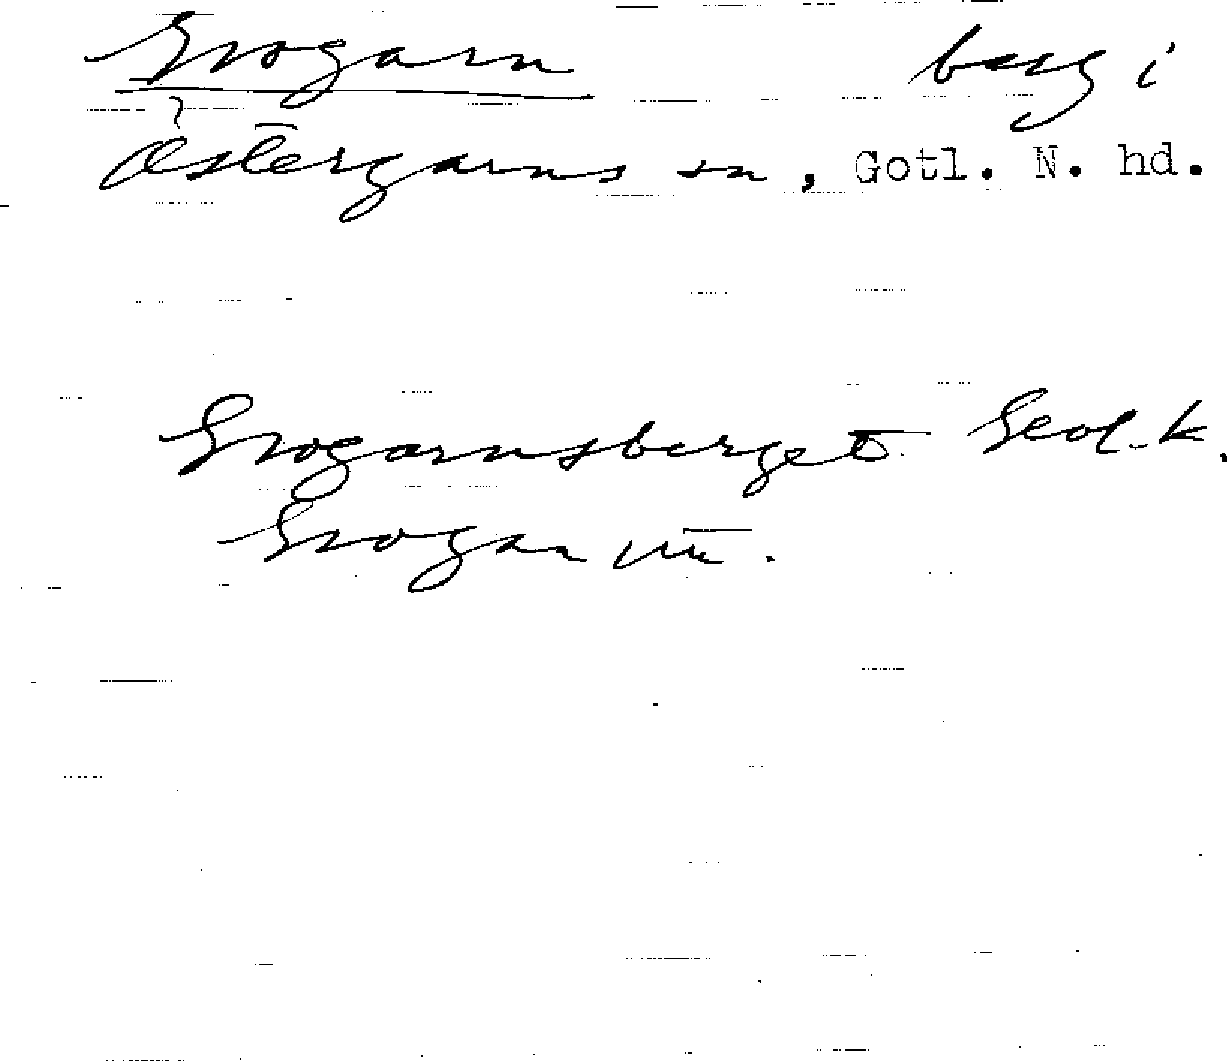 Grogarn berg i
Östergarns sn, Gotl. N. hd.
Grogarnsberget Geol. k.
Grogan